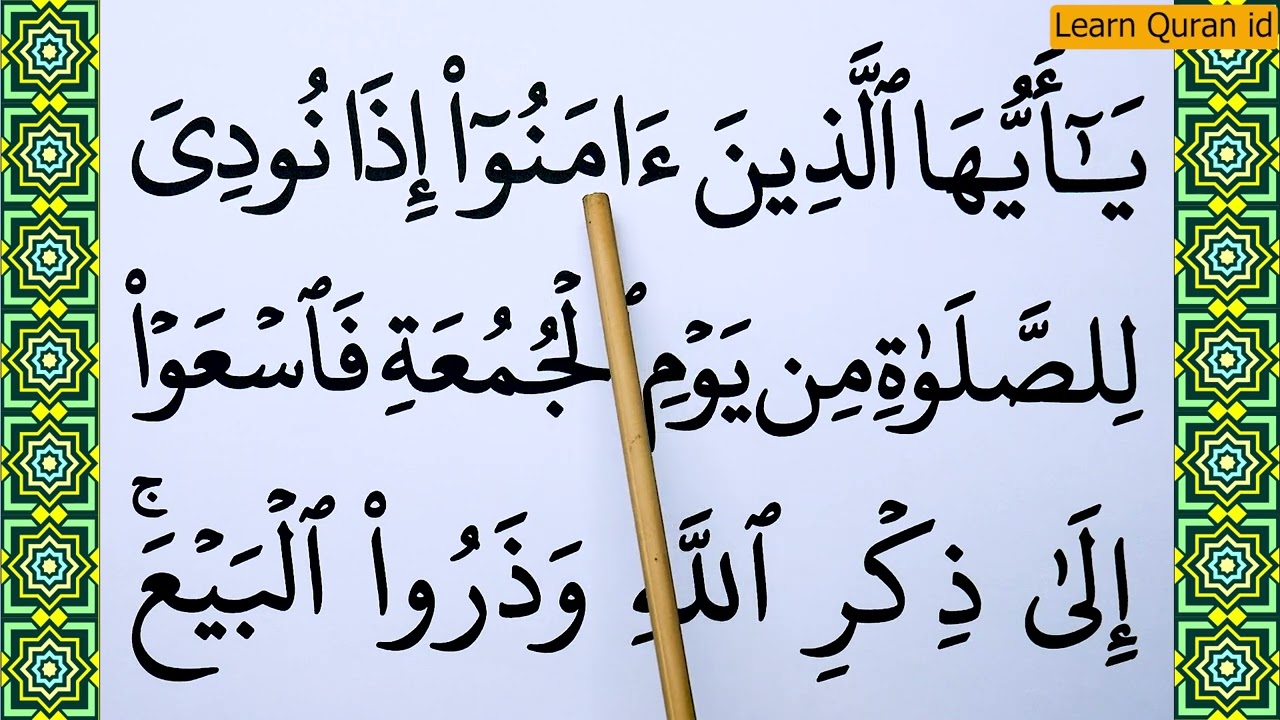 Learn Quran id
يَـٰٓأَيُّهَا ٱلَّذِينَ ءَامَنُوٓا۟ إِذَا نُودِىَ
لِلصَّلَوٰةِ مِن يَوْمِ ٱلْجُمُعَةِ فَٱسْعَوْا۟
إِلَىٰ ذِكْرِ ٱللَّهِ وَذَرُوا۟ ٱلْبَيْعَ ۚ